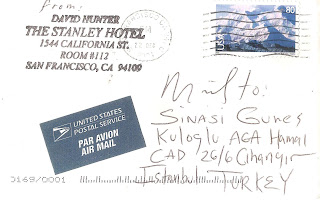 From:
DAVID HUNTER
THE STANLEY HOTEL
1544 CALIFORNIA ST.
ROOM #112
SAN FRANCISCO, CA 94109
80
USA
UNITED STATES
POSTAL SERVICE
PAR AVION
AIR MAIL
Mail to:
SINASI GUNES
KULOGLU AGA Hamal
CAD 26/6 Cihangir
Istanbul TURKEY
0169/0001